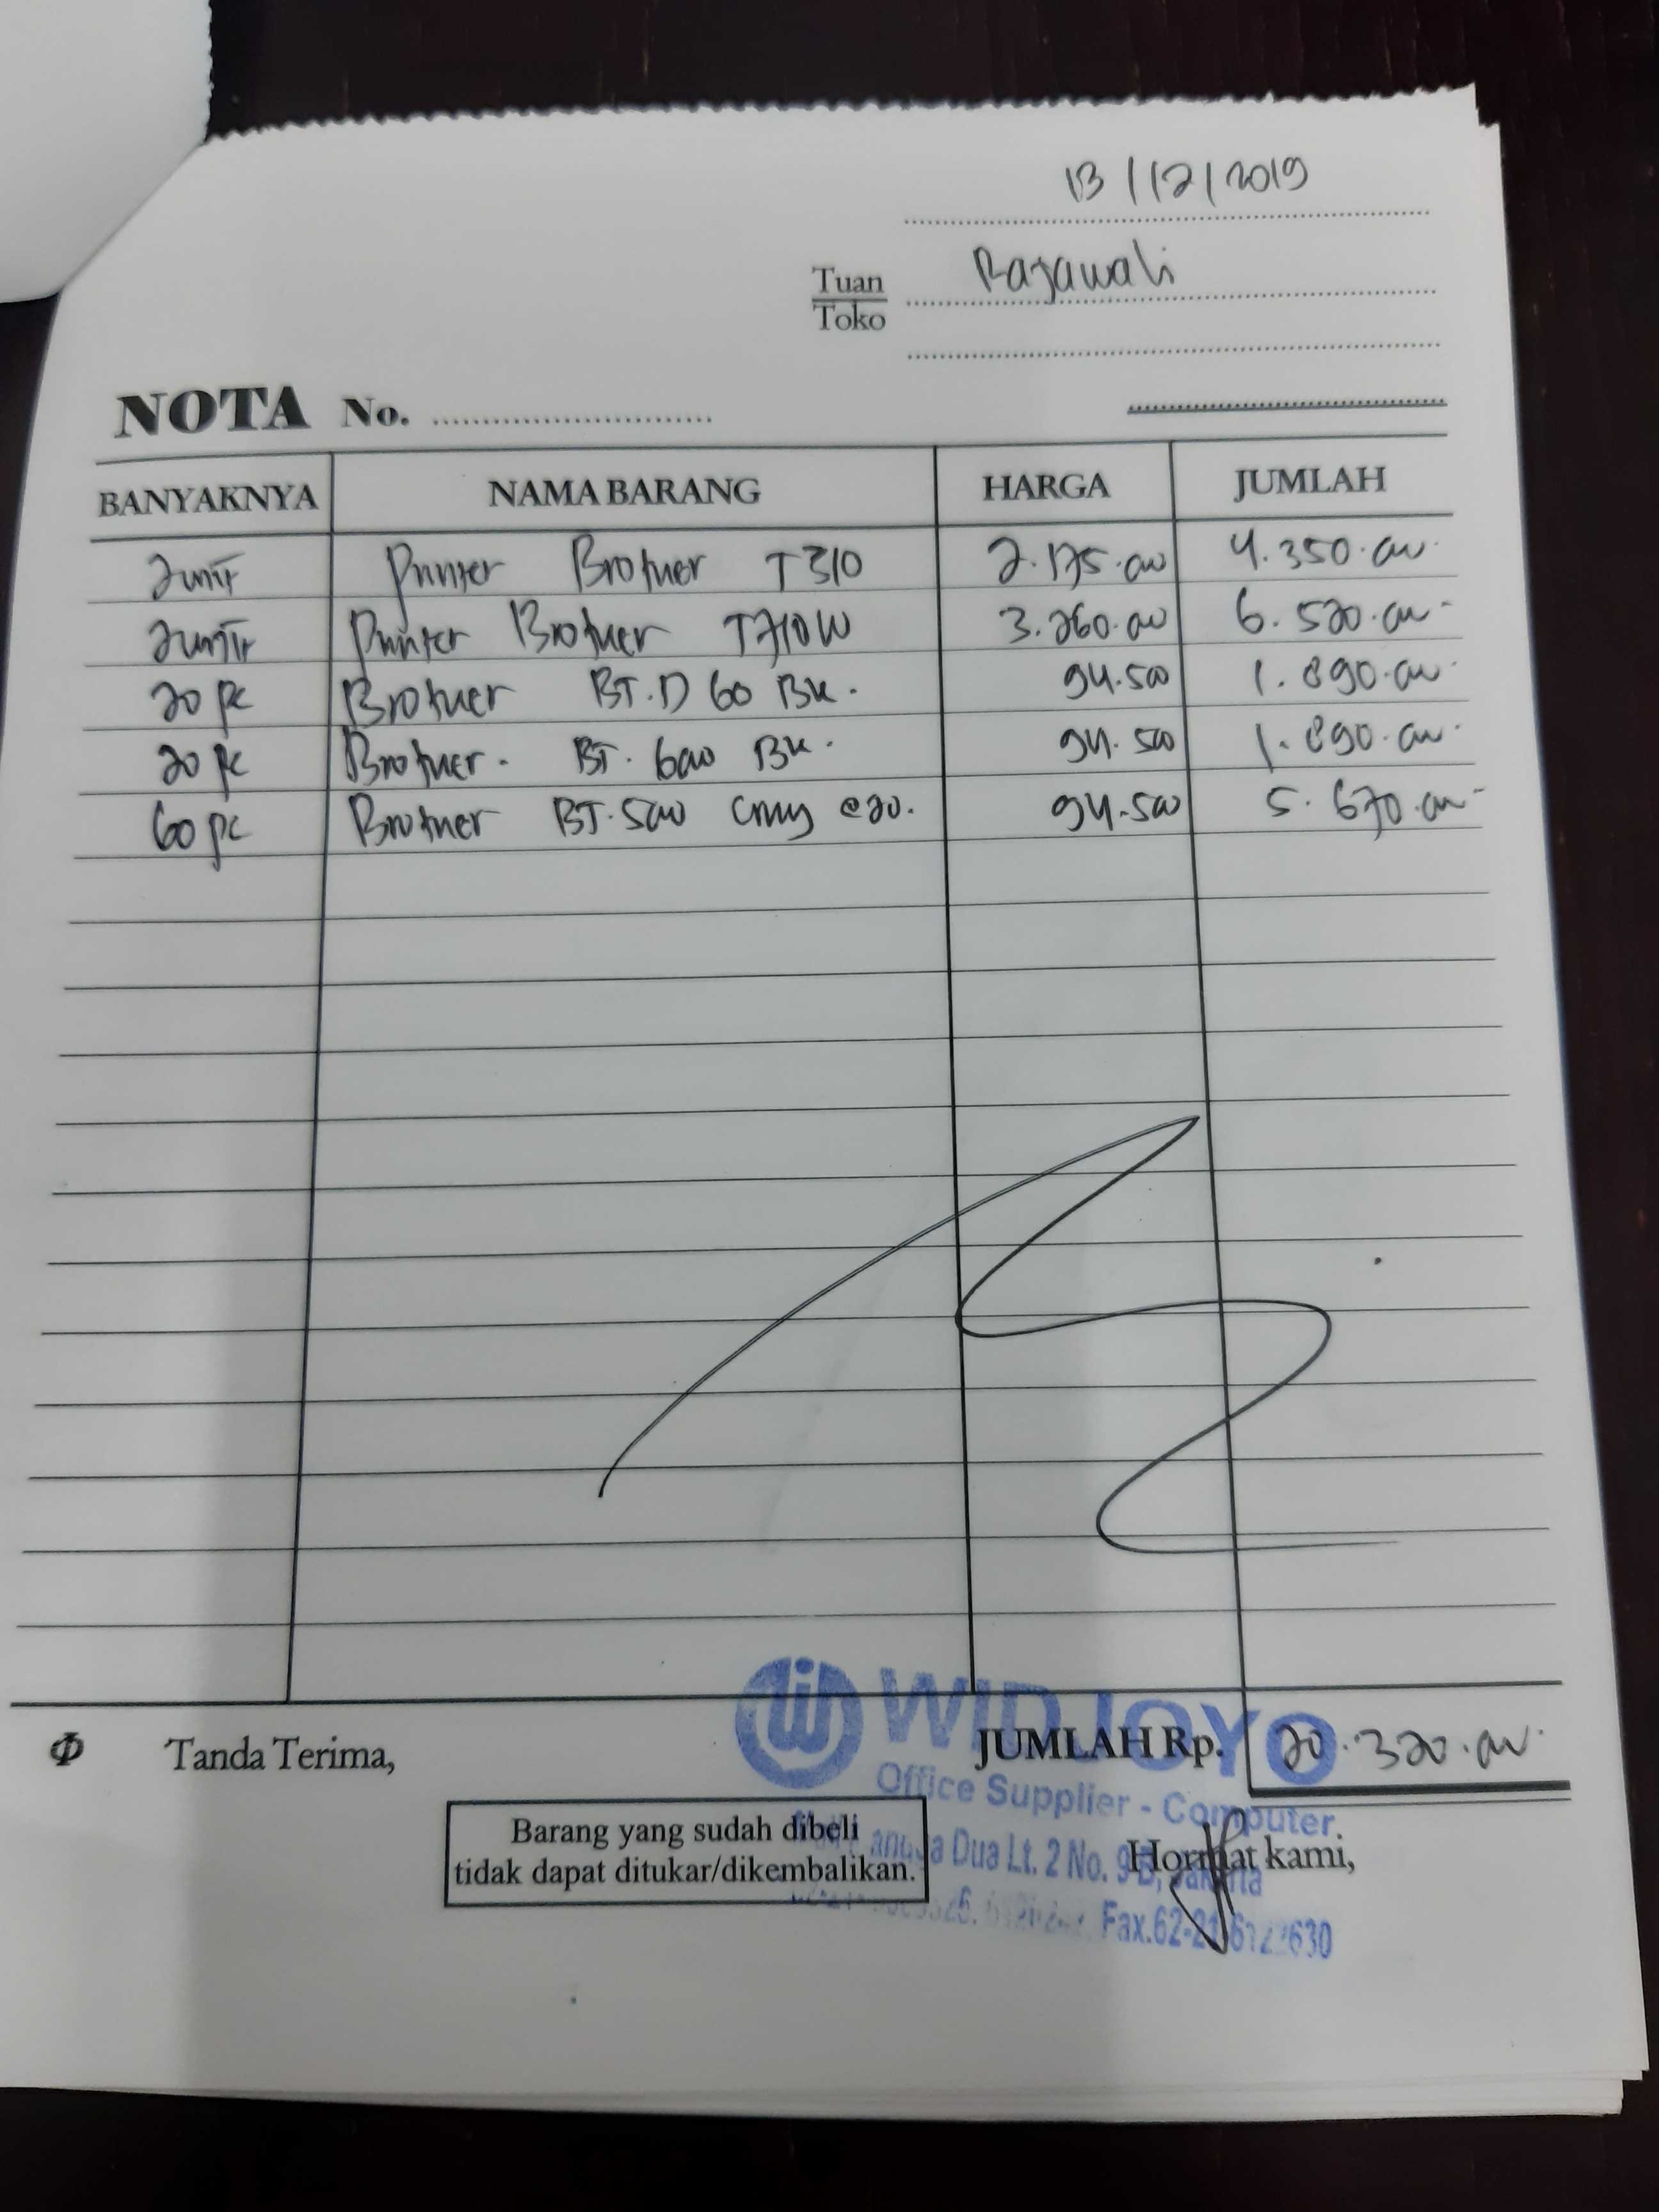 13/12/2019
Tuan
Toko
Rajawali
NOTA No.
BANYAKNYA NAMA BARANG HARGA JUMLAH
2 unit Printer Brother T310 2.175.000 4.350.000
2 unit Printer Brother T710W 3.260.000 6.520.000
20 pc Brother BT.D 60 BK. 94.500 1.890.000
20 pc Brother. BT. 6000 BK. 94.500 1.890.000
60 pc Brother BT.5000 CMY @20. 94.500 5.670.000
WIDJOYO
Tanda Terima, JUMLAH Rp. 20.320.000
Office Supplier - Computer
Barang yang sudah dibeli
tidak dapat ditukar/dikembalikan.
Dua Lt. 2 No. 9B, Jakarta
Hormat kami,
Fax.62-21